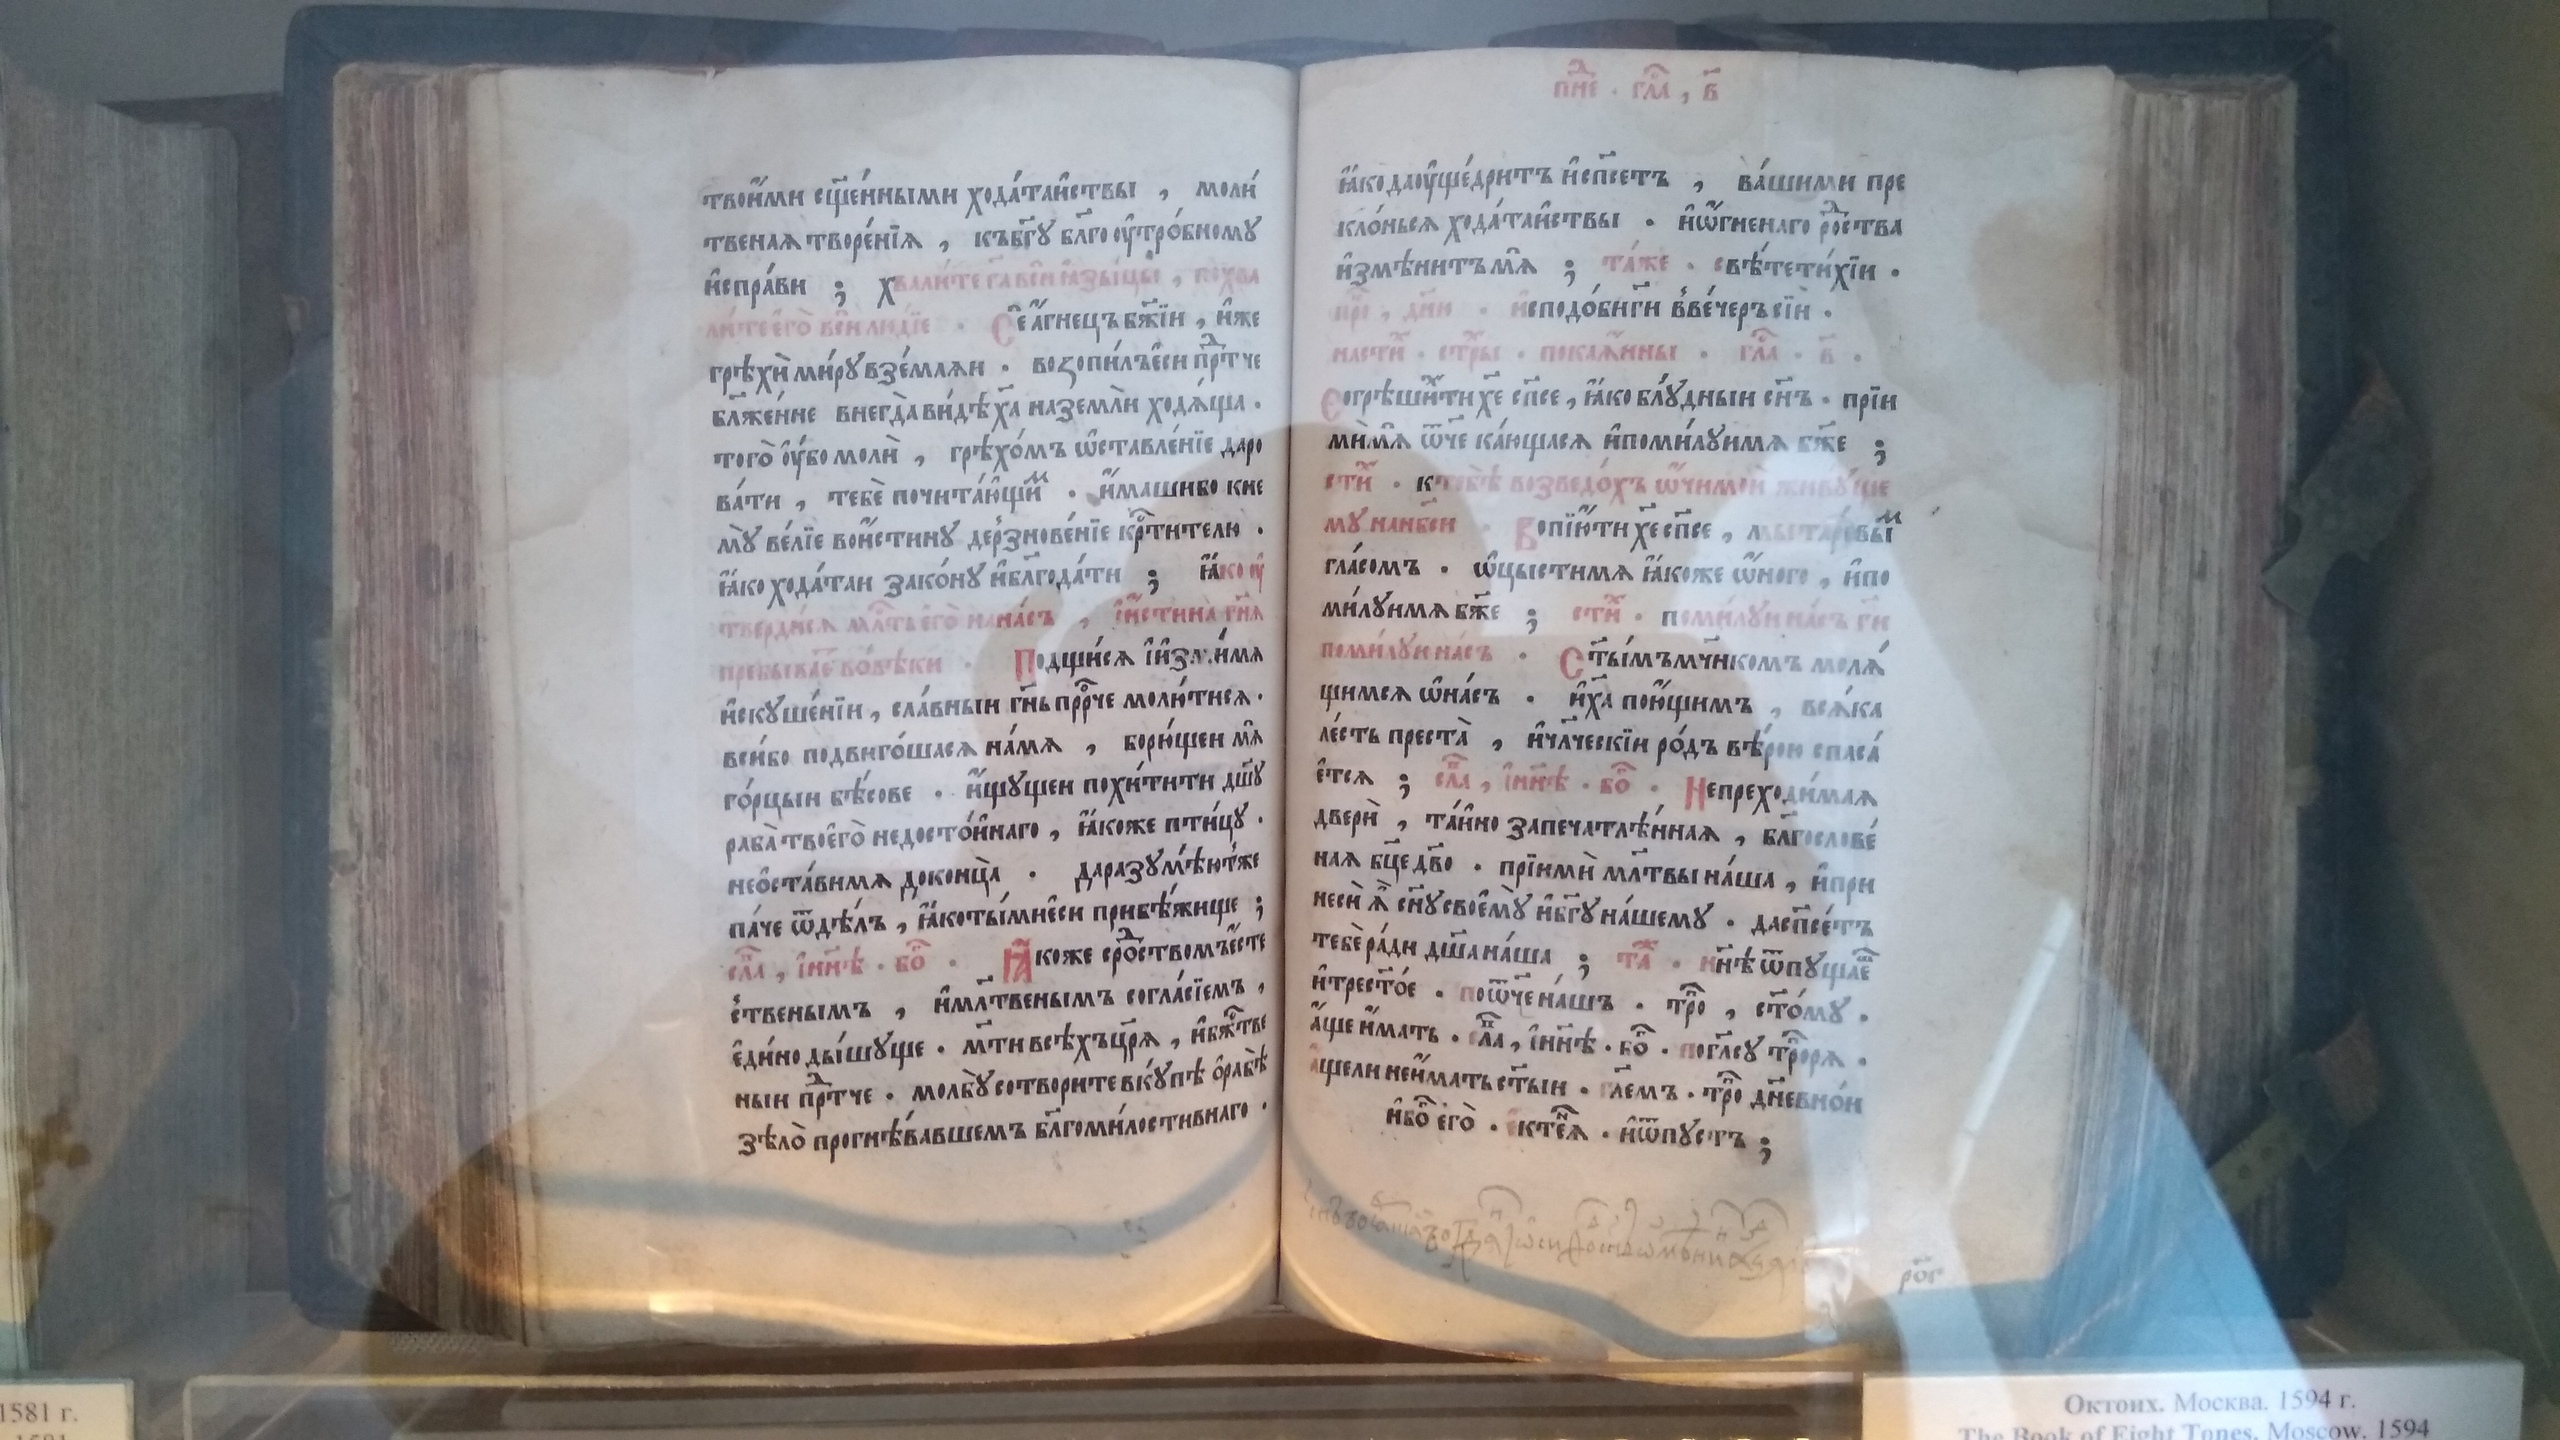 твои́ми сщ҃е́нными хода́таиствы , моли́
твеная творе́нїя , къбг҃у бл҃гоѹтро́бному
испра́ви ; хвали́те га҃ вси ꙗзы́цы , похва
ли́те его̀ вси лю́дїе · Се а́гнецъ бж҃їи , иже
грѣхѝ ми́ру взе́мляи · возопи́лъ еси прⷣтче
бл҃же́нне внегда̀ ви́дѣ ха҃ на земли́ ходя́ща ·
того̀ ѹ҆́бо молѝ , грѣхо́мъ ѡставле́нїе даро
ва́ти , тебѐ почита́ющиⷨ · и́маши бо к не
му̀ ве́лїе вои́стину дерзнове́нїе крⷭ҇тителю ·
ꙗко хода́таи зако́ну и бл҃года́ти ; ꙗко ѹ
тверди́ся млⷭ҇ть его̀ на на́съ , и и́стина гн҃я
пребываеⷮ во вѣ́ки · Подщи́ся и изми́ мя
искуше́нїи , сла́вныи гн҃ь прⷪ҇рче молю́ ти ся ·
вси́ бо подвиго́шася на́ мя , борю́щеи мя
го́рцыи бѣ́сове · и́щущеи похи́тити дш҃у
раба̀ твоего̀ недосто́инаго , ꙗкоже пти́цу ·
не оста́ви мя до конца̀ · да разумѣ́ютже
па́че ѿ дѣ́лъ , ꙗко ты́ ми еси прибѣ́жище ;
слⷡ҇а , и нн҃ѣ · боⷢ · Ꙗкоже срⷪ҇дствомъ есте
ственымъ , и мл҃твенымъ согла́сїемъ ,
еди́но ды́шуще · мт҃и всѣ́хъ цр҃я , и бжⷭ҇тве
ныи прⷣтче · молбу̀ сотвори́те вку́пѣ о рабѣ̀
зѣло̀ прогнѣ́вавшемъ бл҃гоми́лостивнаго ·
пнⷣе · глⷭ҇а , в҃
ꙗко да ѹще́дритъ и спс҃етъ , ва́шими пре
кло́нься хода́таиствы · и ѻ́гненаго рⷣоства
измѣни́тъ мя ; та́же · свѣ́те ти́хїи ·
прⷪ҇ , дн҃и · и сподо́би гд҃и в ве́черъ сїи ·
на стиⷯ · стⷯры · покая́нны · глⷭ҇а · в҃ ·
Согрѣши́х ти хе҃ сп҃се , ꙗко блу́дныи сн҃ъ · прїи
ми́ мя ѿч҃е ка́ющася и поми́луи мя бж҃е ;
стиⷯ · к тебѣ̀ возведо́хъ ѻ́чи мои живу́ще
му на нб҃си · Вопїю́ ти хе҃ сп҃се , мытаре́выⷨ
гла́сомъ · ѡцы́сти мя ꙗкоже ѻ́ного , и по
ми́луи мя бж҃е ; стиⷯ · поми́луи на́съ гд҃и
поми́луи на́съ · Ст҃ы́мъ мч҃нкомъ моля́
щимся ѡ на́съ · и ха҃ пою́щимъ , вся́ка
ле́сть преста̀ , и чл҃ческїи ро́дъ вѣ́рою спаса́
ется ; слⷡ҇а , и нн҃ѣ · боⷢ · Непреходи́мая
дверѝ , та́ино запечатлѣ́нная , бл҃гослове́
ная бц҃е дв҃о · прїимѝ мл҃твы на́ша , и при
несѝ ꙗ̀ сн҃у своему̀ и бг҃у на́шему · да спс҃е́тъ
тебѐ ра́ди дш҃а на́ша ; таⷤ · нн҃ѣ ѿпуща́еⷲ
и трест҃о́е · по ѿч҃е на́шъ · троⷫ , ст҃о́му ·
а́ще и́мать · слⷡ҇а , и нн҃ѣ · боⷢ · по гла́су тропⷬря ·
а́ще ли не и́мать ст҃ыи · гл҃емъ · троⷫ дневно́и
и боⷢ его̀ · ектенїя · и ѿпу́стъ ;
рог҃
1581 г.
1581
Октоих. Москва. 1594 г.
The Book of Eight Tones. Moscow. 1594